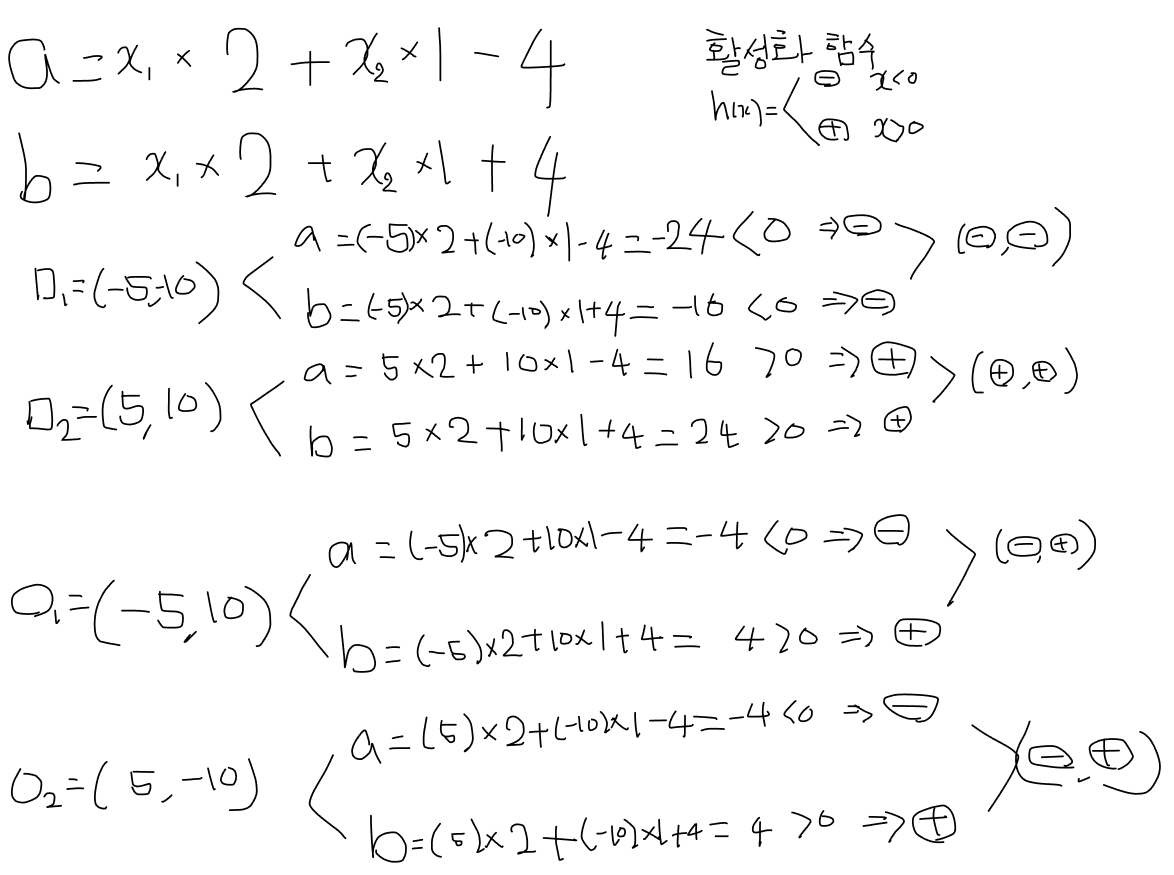 a = x₁ × 2 + x₂ × 1 - 4
활성화 함수
h(x) = < ⊖ x<0
⊕ x>0
b = x₁ × 2 + x₂ × 1 + 4
□₁=(-5,-10) < a = (-5)×2+(-10)×1-4=-24<0 ⇒⊖ > (⊖,⊖)
b=(-5)×2+(-10)×1+4=-16<0 ⇒⊖
□₂=(5,10) < a = 5×2+10×1-4=16 >0 ⇒⊕ > (⊕,⊕)
b = 5×2+10×1+4=24 >0 ⇒ ⊕
O₁=(-5,10) < a = (-5)×2+10×1-4=-4<0 ⇒⊖ > (⊖,⊕)
b=(-5)×2+10×1+4= 4>0 ⇒ ⊕
O₂=(5,-10) < a=(5)×2+(-10)×1-4=-4<0 ⇒ ⊖ > (⊖,⊕)
b=(5)×2+(-10)×1+4= 4 >0 ⇒⊕